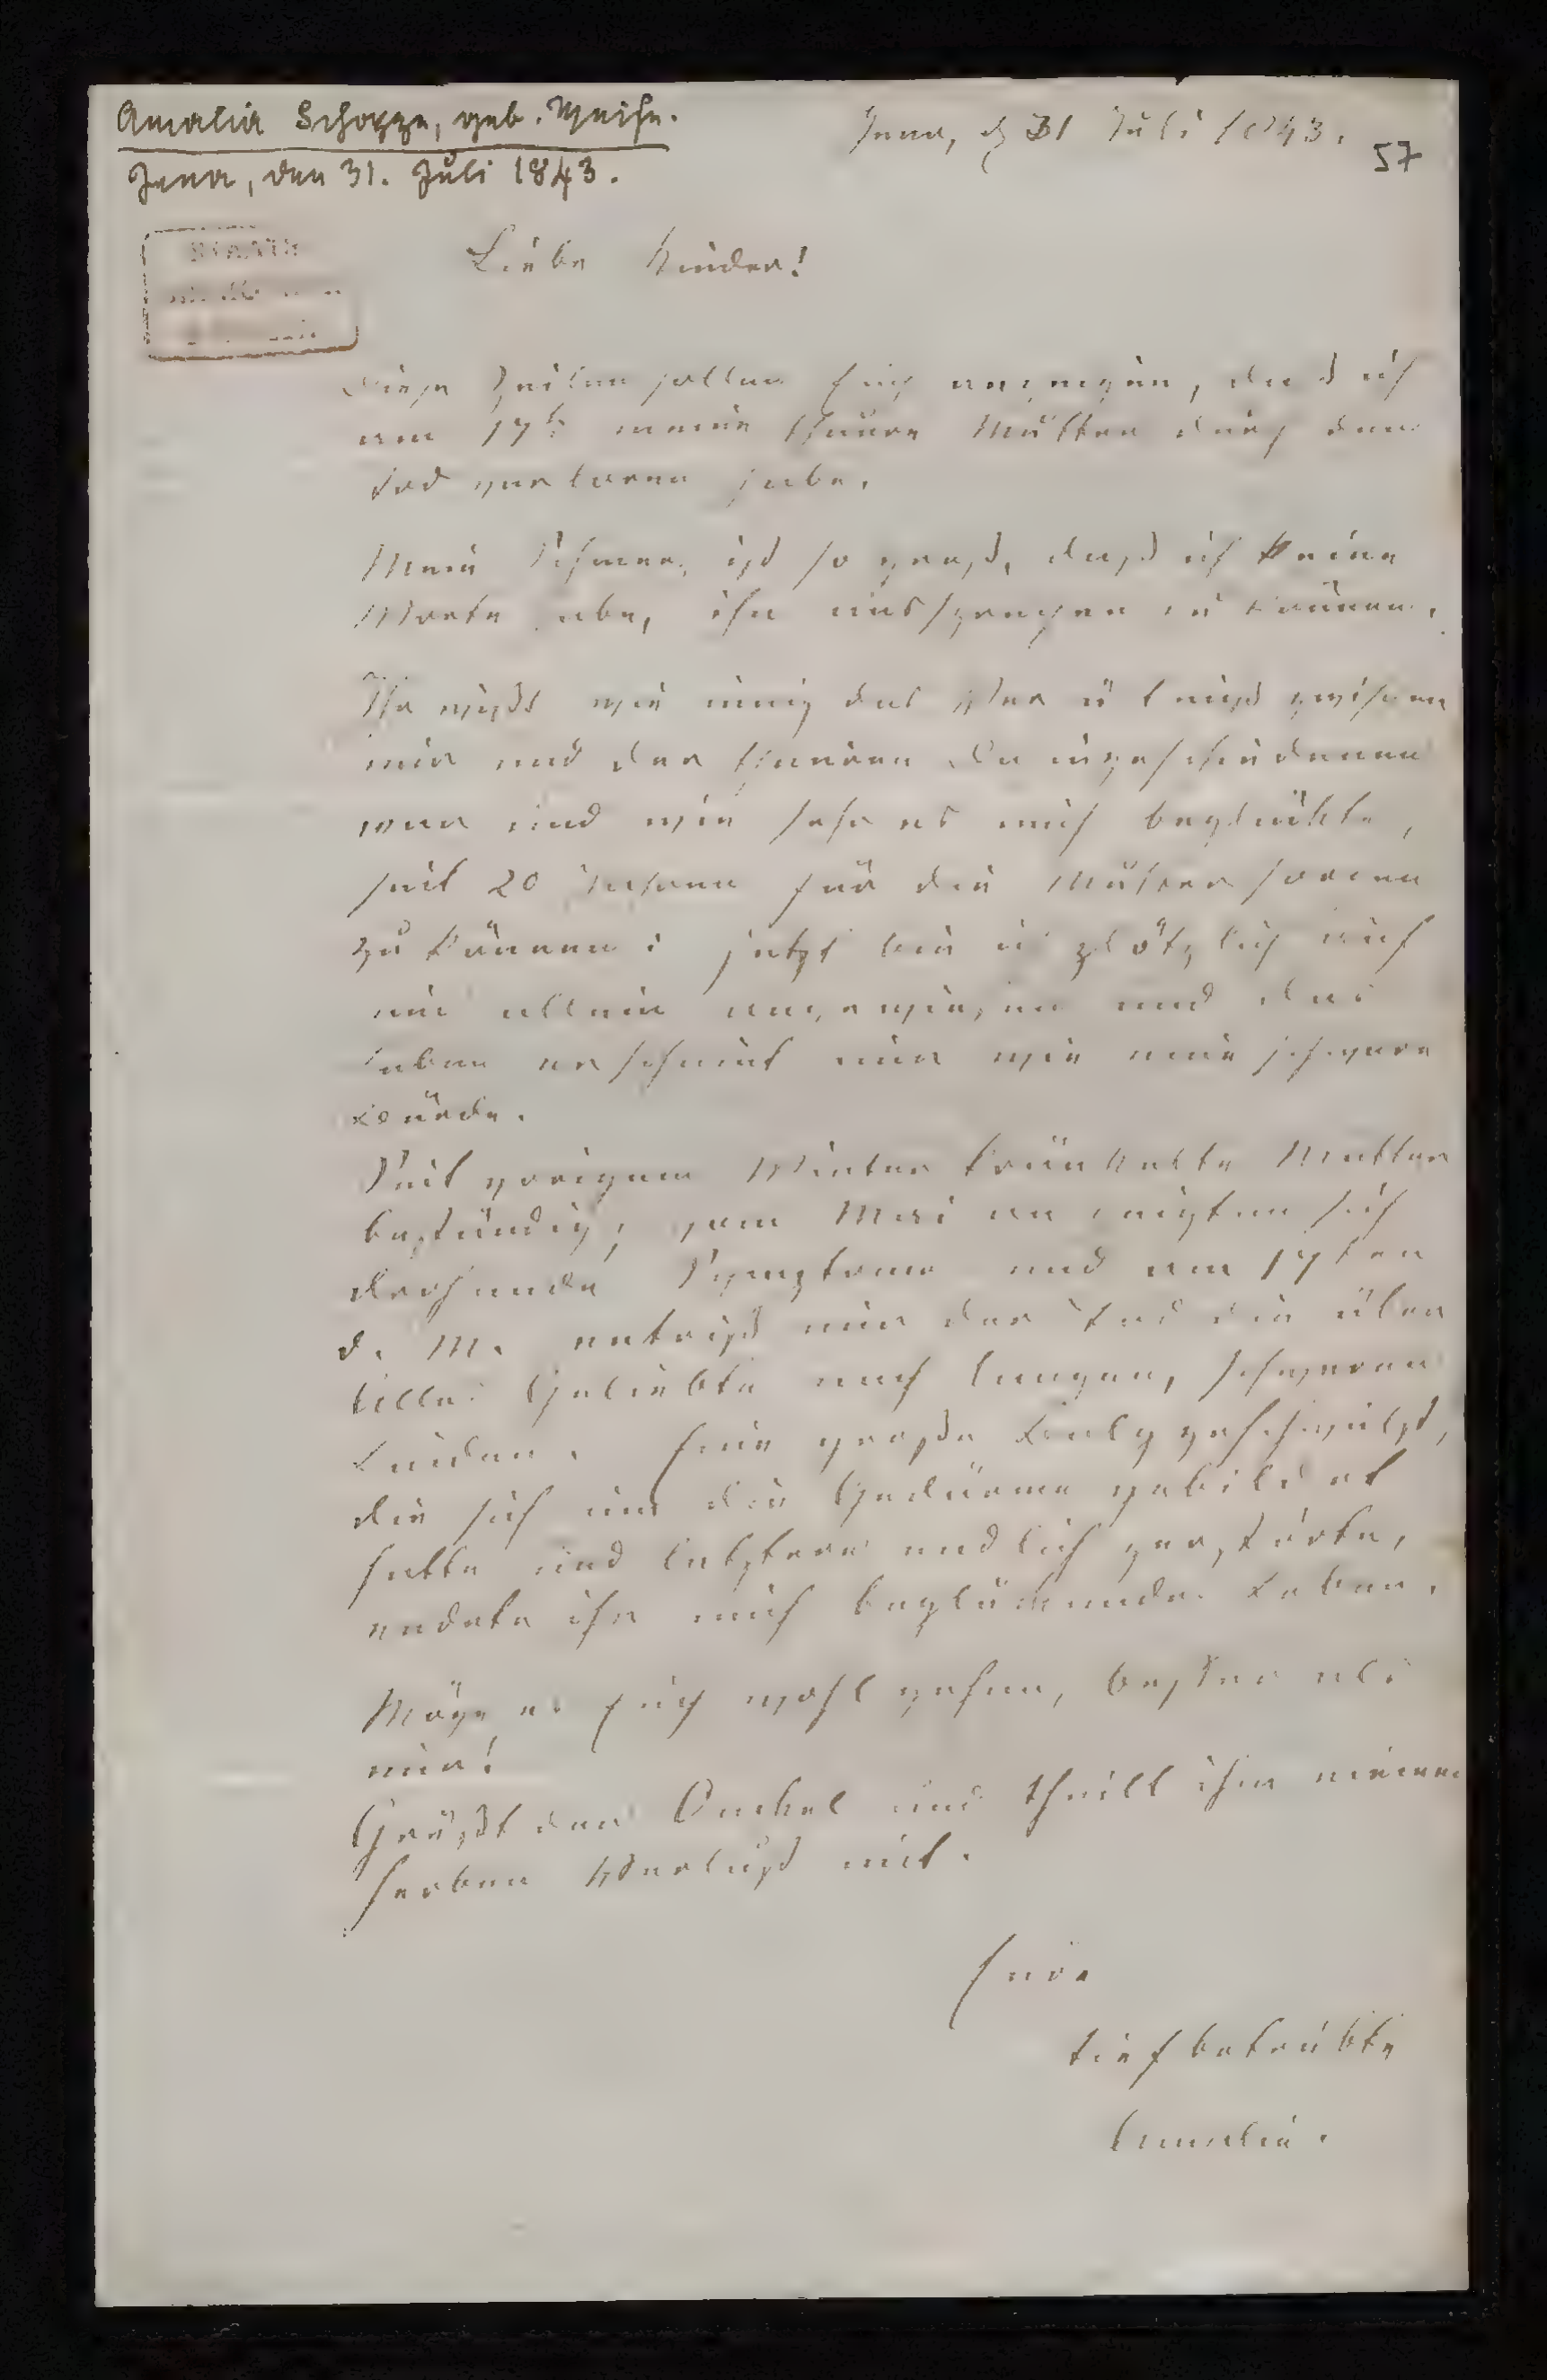 Amalia Schoppe, geb. Weise.
Jena, den 31. Juli 1843.
Jena, d 31 Juli 1843.
57
Liebe Kinder!
Diese Zeilen sollen Euch anzeigen, daß ich
am 17t meine theure Mutter durch den
Tod verloren habe.
Mein Schmerz ist so groß, daß ich keine
Worte habe, ihn aussprechen zu können.
Ihr wißt wie innig das Verhältniß zwischen
mir und der theuren Dahingeschiedenen
war und wie sehr es mich beglückte,
seit 20 Jahren für die Mutter sorgen
zu können: jetzt bin ich plötzlich auf
mich allein angewiesen und das
Leben erscheint mir wie eine schwere
Bürde.
Seit vorigem Winter kränkelte Mutter
beständig; vom Mai an zeigten sich
drohende Symptome und am 17ten
d. M. entriß mir der Tod die über
Alles Geliebte nach langen, schweren
Leiden. Eine große Balggeschwulst,
die sich um die Gedärme gebildet
hatte und letztere endlich zerstörte,
endete ihr mich beglückendes Leben.
Möge es Euch wohl gehen, besser als
mir!
Grüßt den Onckel und theilt ihm meinen
herben Verlust mit.
Eure
tief betrübte
Amalie.